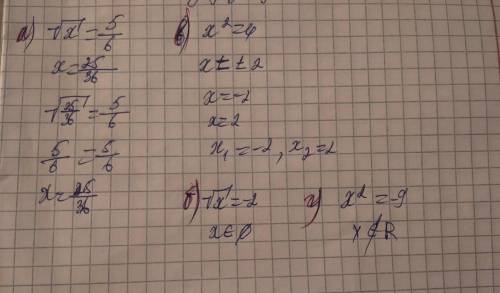 а) √x = 5/6
x = 25/36
√25/36 = 5/6
5/6 = 5/6
x = 25/36
в) x² = 4
x ± ± 2
x = -2
x = 2
x₁ = -2, x₂ = 2
б) √x = -2
x ∈ ∅
г) x² = -9
x ∉ R